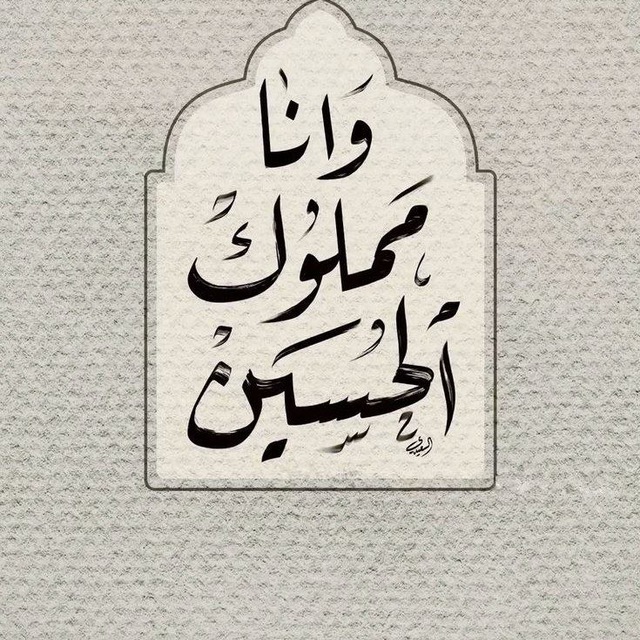 وَانا
مَملوُك
ألحُسَين